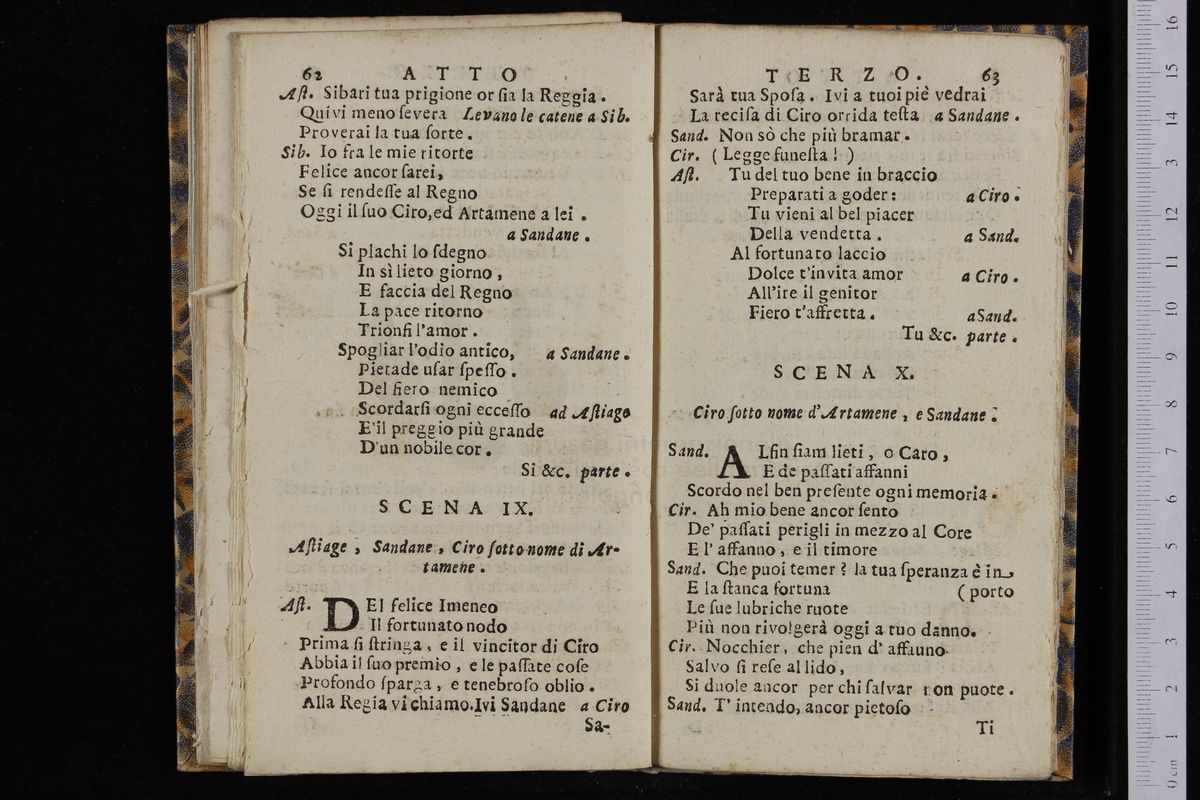 62 ATTO
Aſt. Sibari tua prigione or ſia la Reggia.
Quivi meno ſevera Levano le catene a Sib.
Proverai la tua ſorte.
Sib. Io fra le mie ritorte
Felice ancor ſarei,
Se ſi rendeſſe al Regno
Oggi il ſuo Ciro, ed Artamene a lei.
a Sandane.
Si plachi lo ſdegno
In sì lieto giorno,
E faccia del Regno
La pace ritorno
Trionfi l'amor.
Spogliar l'odio antico, a Sandane.
Pietade uſar ſpeſſo.
Del fiero nemico
Scordarſi ogni ecceſſo ad Aſtiago
E'il preggio più grande
D'un nobile cor.
Si &c. parte.
SCENA IX.
Aſtiage, Sandane, Ciro ſotto nome di Ar-
tamene.
Aſt. DEl felice Imeneo
Il fortunato nodo
Prima ſi ſtringa, e il vincitor di Ciro
Abbia il ſuo premio, e le paſſate coſe
Profondo ſparga, e tenebroſo oblio.
Alla Regia vi chiamo. Ivi Sandane a Ciro
Sa-
TERZO. 63
Sarà tua Spoſa. Ivi a tuoi piè vedrai
La reciſa di Ciro orrida teſta a Sandane.
Sand. Non sò che più bramar.
Cir. (Legge funeſta!)
Aſt. Tu del tuo bene in braccio
Preparati a goder: a Ciro.
Tu vieni al bel piacer
Della vendetta. a Sand.
Al fortunato laccio
Dolce t'invita amor a Ciro.
All'ire il genitor
Fiero t'affretta. a Sand.
Tu &c. parte.
SCENA X.
Ciro ſotto nome d'Artamene, e Sandane.
Sand. ALfin ſiam lieti, o Caro,
E de paſſati affanni
Scordo nel ben preſente ogni memoria.
Cir. Ah mio bene ancor ſento
De' paſſati perigli in mezzo al Core
E l' affanno, e il timore
Sand. Che puoi temer? la tua ſperanza è in
E la ſtanca fortuna (porto
Le ſue lubriche ruote
Più non rivolgerà oggi a tuo danno.
Cir. Nocchier, che pien d' affauno
Salvo ſi reſe al lido,
Si duole ancor per chi ſalvar non puote.
Sand. T' intendo, ancor pietoſo
Ti
16
15
14
13
12
11
10
9
8
7
6
5
4
3
2
1
0 cm